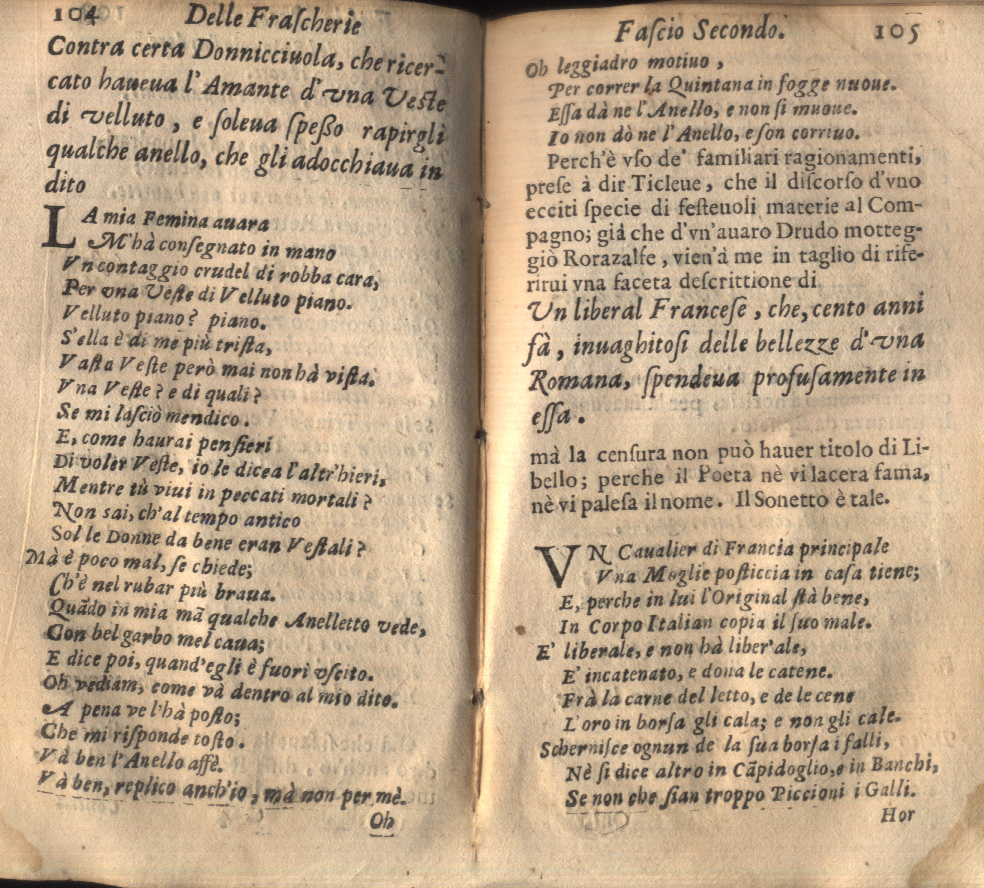 104 Delle Fraſcherie
Contra certa Donnicciuola, che ricer-
cato haueua l'Amante d'vna Veſte
di velluto, e ſoleua ſpeßo rapirgli
qualche anello, che gli adocchiaua in
dito
LA mia Femina auara
M'hà conſegnato in mano
Vn contaggio crudel di robba cara,
Per vna Veſte di Velluto piano.
Velluto piano? piano.
S'ella è di me più triſta,
Vaſta Veſte però mai non hà viſta.
Vna Veſte? e di quali?
Se mi laſciò mendico.
E, come haurai penſieri
Di voler Veſte, io le dicea l'altr'hieri,
Mentre tù viui in peccati mortali?
Non sai, ch'al tempo antico
Sol le Donne da bene eran Veſtali?
Mà è poco mal, ſe chiede;
Ch'è nel rubar più braua.
Quãdo in mia mã qualche Anelletto vede,
Con bel garbo mel caua;
E dice poi, quand'egli è fuori vſcito.
Oh vediam, come và dentro al mio dito.
A pena ve l'hà poſto;
Che mi riſponde toſto.
Và ben l'Anello affè.
Và ben, replico anch'io, mà non per mè.
Oh
Faſcio Secondo. 105
Oh leggiadro motiuo,
Per correr la Quintana in fogge nuoue.
Eſſa dà ne l'Anello, e non ſi muoue.
Io non dò ne l'Anello, e ſon corriuo.
Perch'è vſo de' familiari ragionamenti,
preſe à dir Ticleue, che il diſcorſo d'vno
ecciti ſpecie di feſteuoli materie al Com-
pagno; già che d'vn'auaro Drudo motteg-
giò Rorazalſe, vien'à me in taglio di rife-
rirui vna faceta deſcrittione di
Vn liberal Franceſe, che, cento anni
fà, inuaghitoſi delle bellezze d'vna
Romana, ſpendeua profuſamente in
eſſa.
mà la cenſura non può hauer titolo di Li-
bello; perche il Poeta nè vi lacera fama,
nè vi paleſa il nome. Il Sonetto è tale.
VN Caualier di Francia principale
Vna Moglie poſticcia in caſa tiene;
E, perche in lui l'Original ſtà bene,
In Corpo Italian copia il ſuo male.
E' liberale, e non hà liber'ale,
E' incatenato, e dona le catene.
Frà la carne del letto, e de le cene
L'oro in borſa gli cala; e non gli cale.
Scherniſce ognun de la ſua borſa i falli,
Nè ſi dice altro in Cãpidoglio, e in Banchi,
Se non che ſian troppo Piccioni i Galli.
Hor